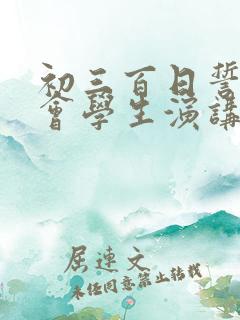 初三百日誓
會學生演講
屈連文
未经同意禁止转载